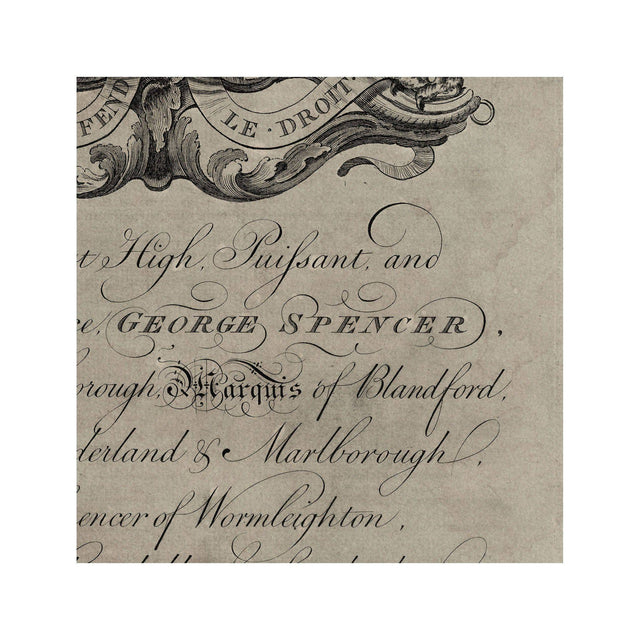 FEND
LE · DROIT.
t High, Puiſsant, and
ce, GEORGE SPENCER,
orough, Marquis of Blandford,
derland & Marlborough,
encer of Wormleighton,